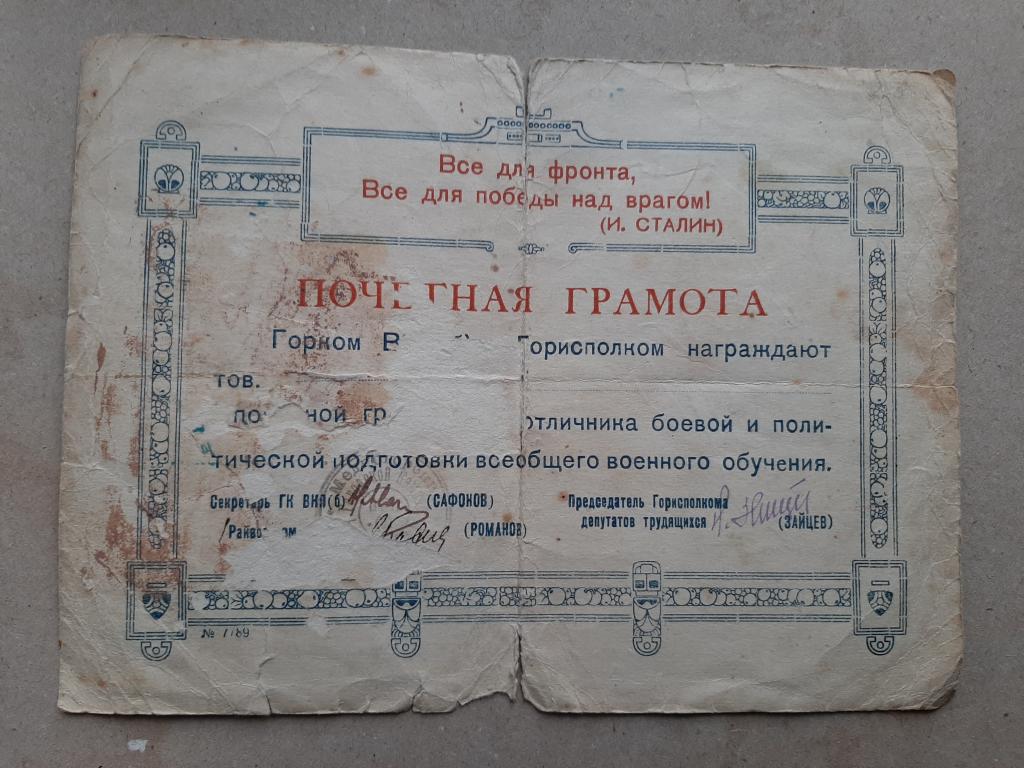 Все для фронта,
Все для победы над врагом!
(И. СТАЛИН)
ПОЧЕТНАЯ ГРАМОТА
Горком В Горисполком награждают
тов.
отличника боевой и поли-
тической подготовки всеобщего военного обучения.
Секретарь ГК ВКП(б) (САФОНОВ)
Председатель Горисполкома
депутатов трудящихся (ЗАЙЦЕВ)
(РОМАНОВ)
№ 7789